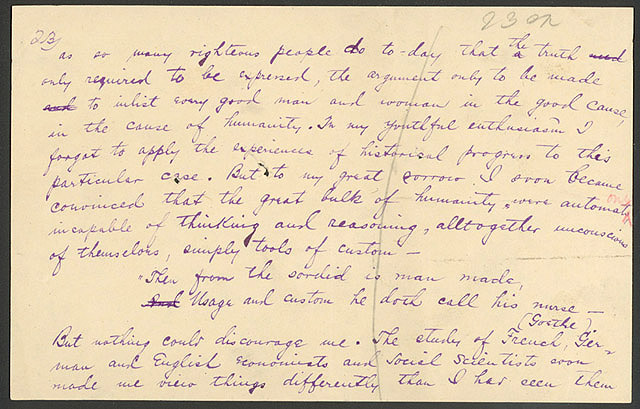 23 on
23)
as so many righteous people do to-day that the truth
only required to be expressed, the argument only to be made
and to inlist every good man and woman in the good cause,
in the cause of humanity. In my youthful enthusiasm I
forgot to apply the experiences of historical progress to this
particular case. But to my great sorrow I soon became
convinced that the great bulk of humanity were automats
incapable of thinking and reasoning, alltogether unconscious
of themselves, simply tools of custom —
"Then from the sordid is man made,
And Usage and custom he doth call his nurse —
(Goethe)
But nothing could discourage me. The study of French, Ger-
man and English Economists and Social Scientists soon
made me view things differently than I had seen them